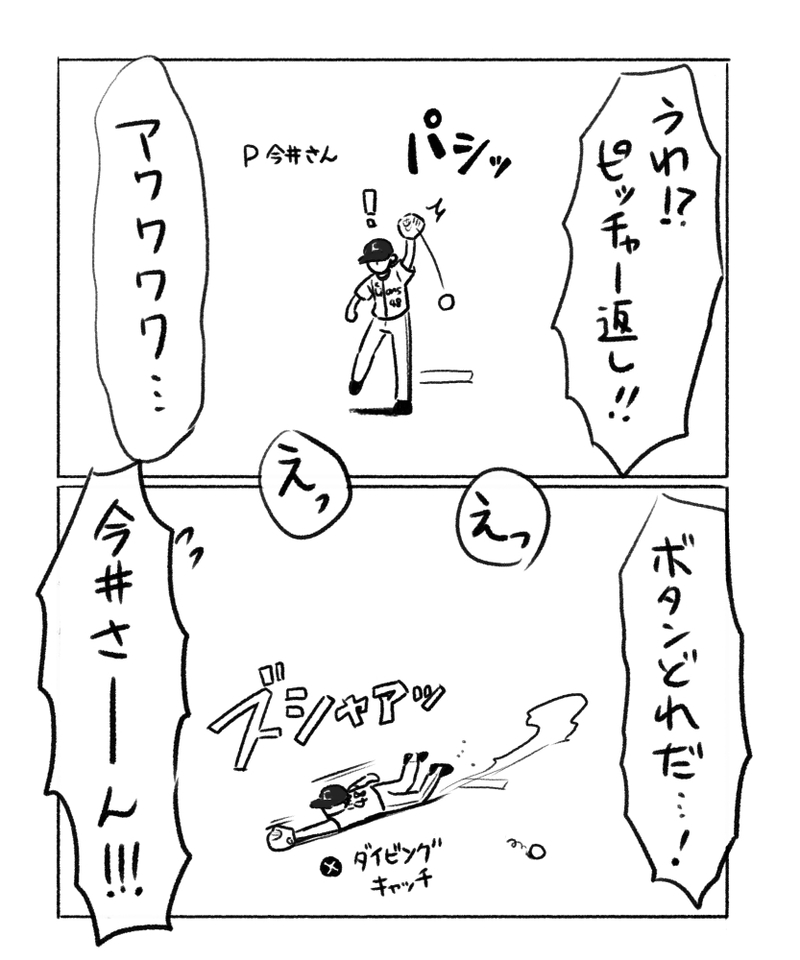 うわ!?
ピッチャー返し!!
パシッ
P 今井さん
!
L
Lions
48
アワワワワ…
えっ
えっ
ボタンどれだ…!
ズシャアッ
ⓧダイビング
キャッチ
今井さーーん!!!